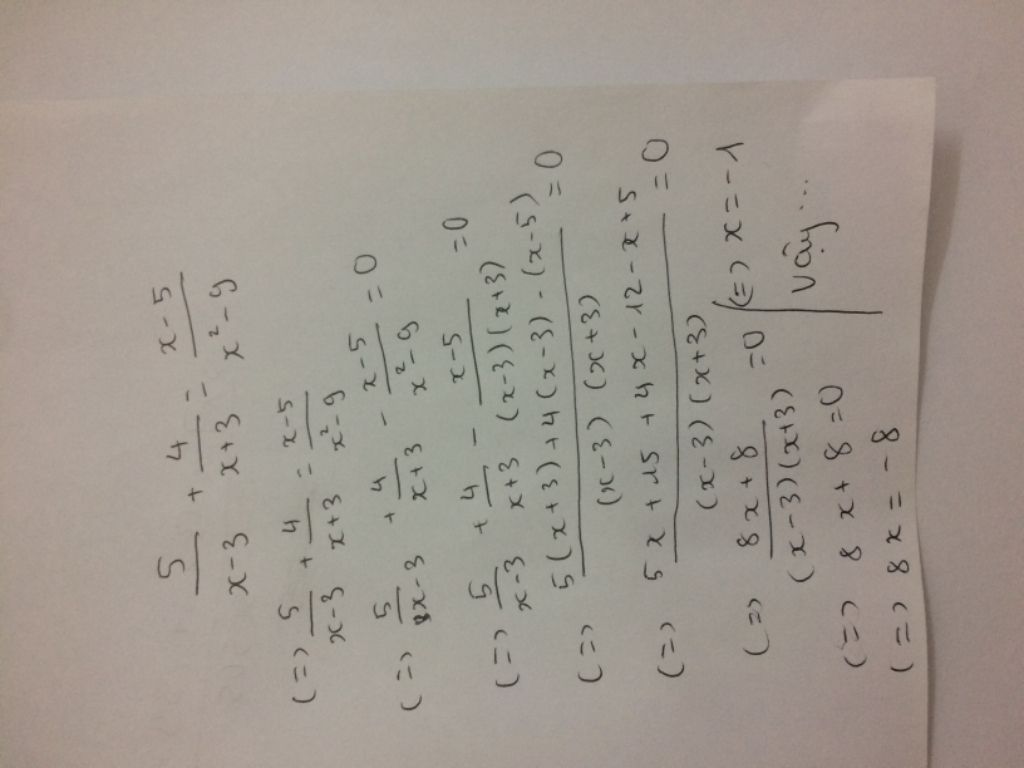 5/(x-3) + 4/(x+3) = (x-5)/(x²-9)
(=> 5/(x-3) + 4/(x+3) = (x-5)/(x²-9)
(=> 5/(x-3) + 4/(x+3) - (x-5)/(x²-9) = 0
(=> 5/(x-3) + 4/(x+3) - (x-5)/((x-3)(x+3)) = 0
(=> (5(x+3)+4(x-3)-(x-5))/((x-3)(x+3)) = 0
(=> (5x+15+4x-12-x+5)/((x-3)(x+3)) = 0
(=> (8x+8)/((x-3)(x+3)) = 0
(=> 8x+8=0
(=> 8x=-8
(=> x=-1
Vậy...